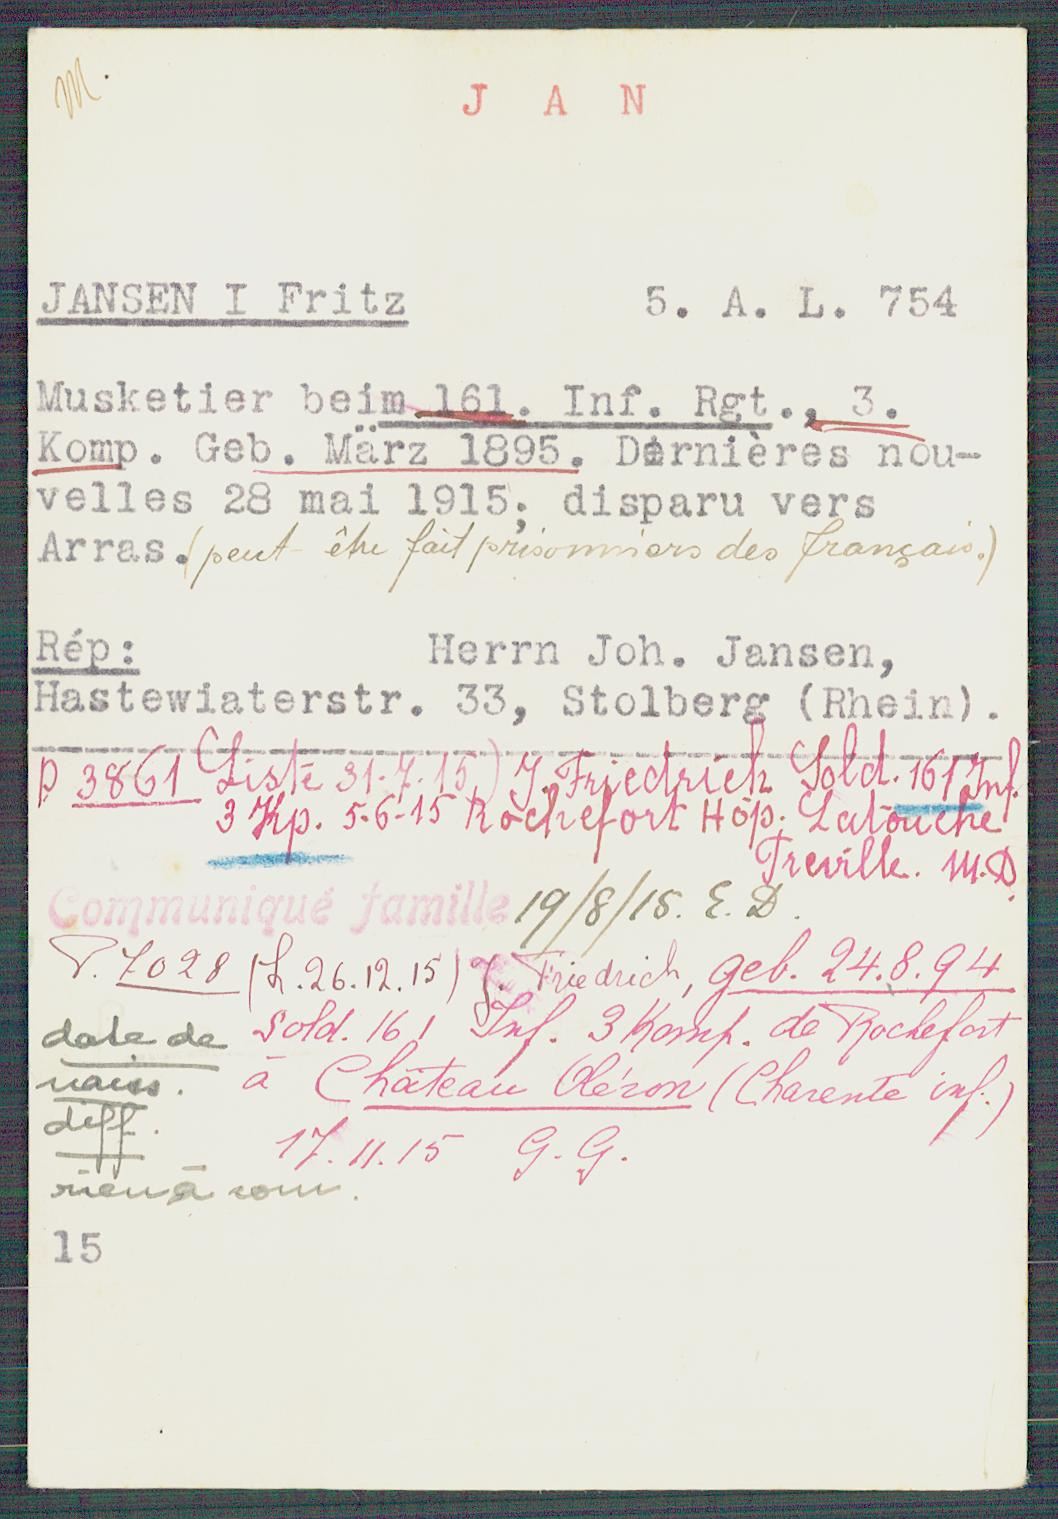 M.
J A N
JANSEN I Fritz 5. A. L. 754
Musketier beim 161. Inf. Rgt., 3.
Komp. Geb. März 1895. Dernières nou-
velles 28 mai 1915; disparu vers
Arras. (peut-être fait prisonniers des français.)
Rép: Herrn Joh. Jansen,
Hastewiaterstr. 33, Stolberg (Rhein).
P 3861 (Liste 31.7.15) J. Friedrich Sold. 161 Inf.
3 Kp. 5-6-15 Rochefort Hôp. Latouche
Treville. M.D.
Communiqué famille 19/8/15. E. D.
P. 7028 (L. 26.12.15) J. Friedrich, geb. 24.8.94
date de Sold. 161 Inf. 3 Komp. de Rochefort
naiss. à Château Oléron (Charente inf.)
diff. 17.11.15 G. G.
rien à com.
15